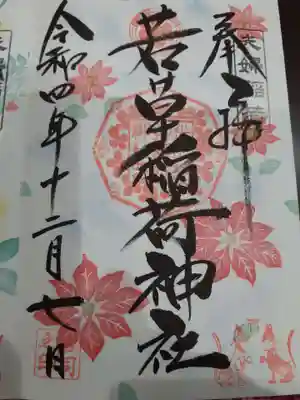 奉拝
夫婦稲荷
若草稲荷神社
令和四年十二月七日